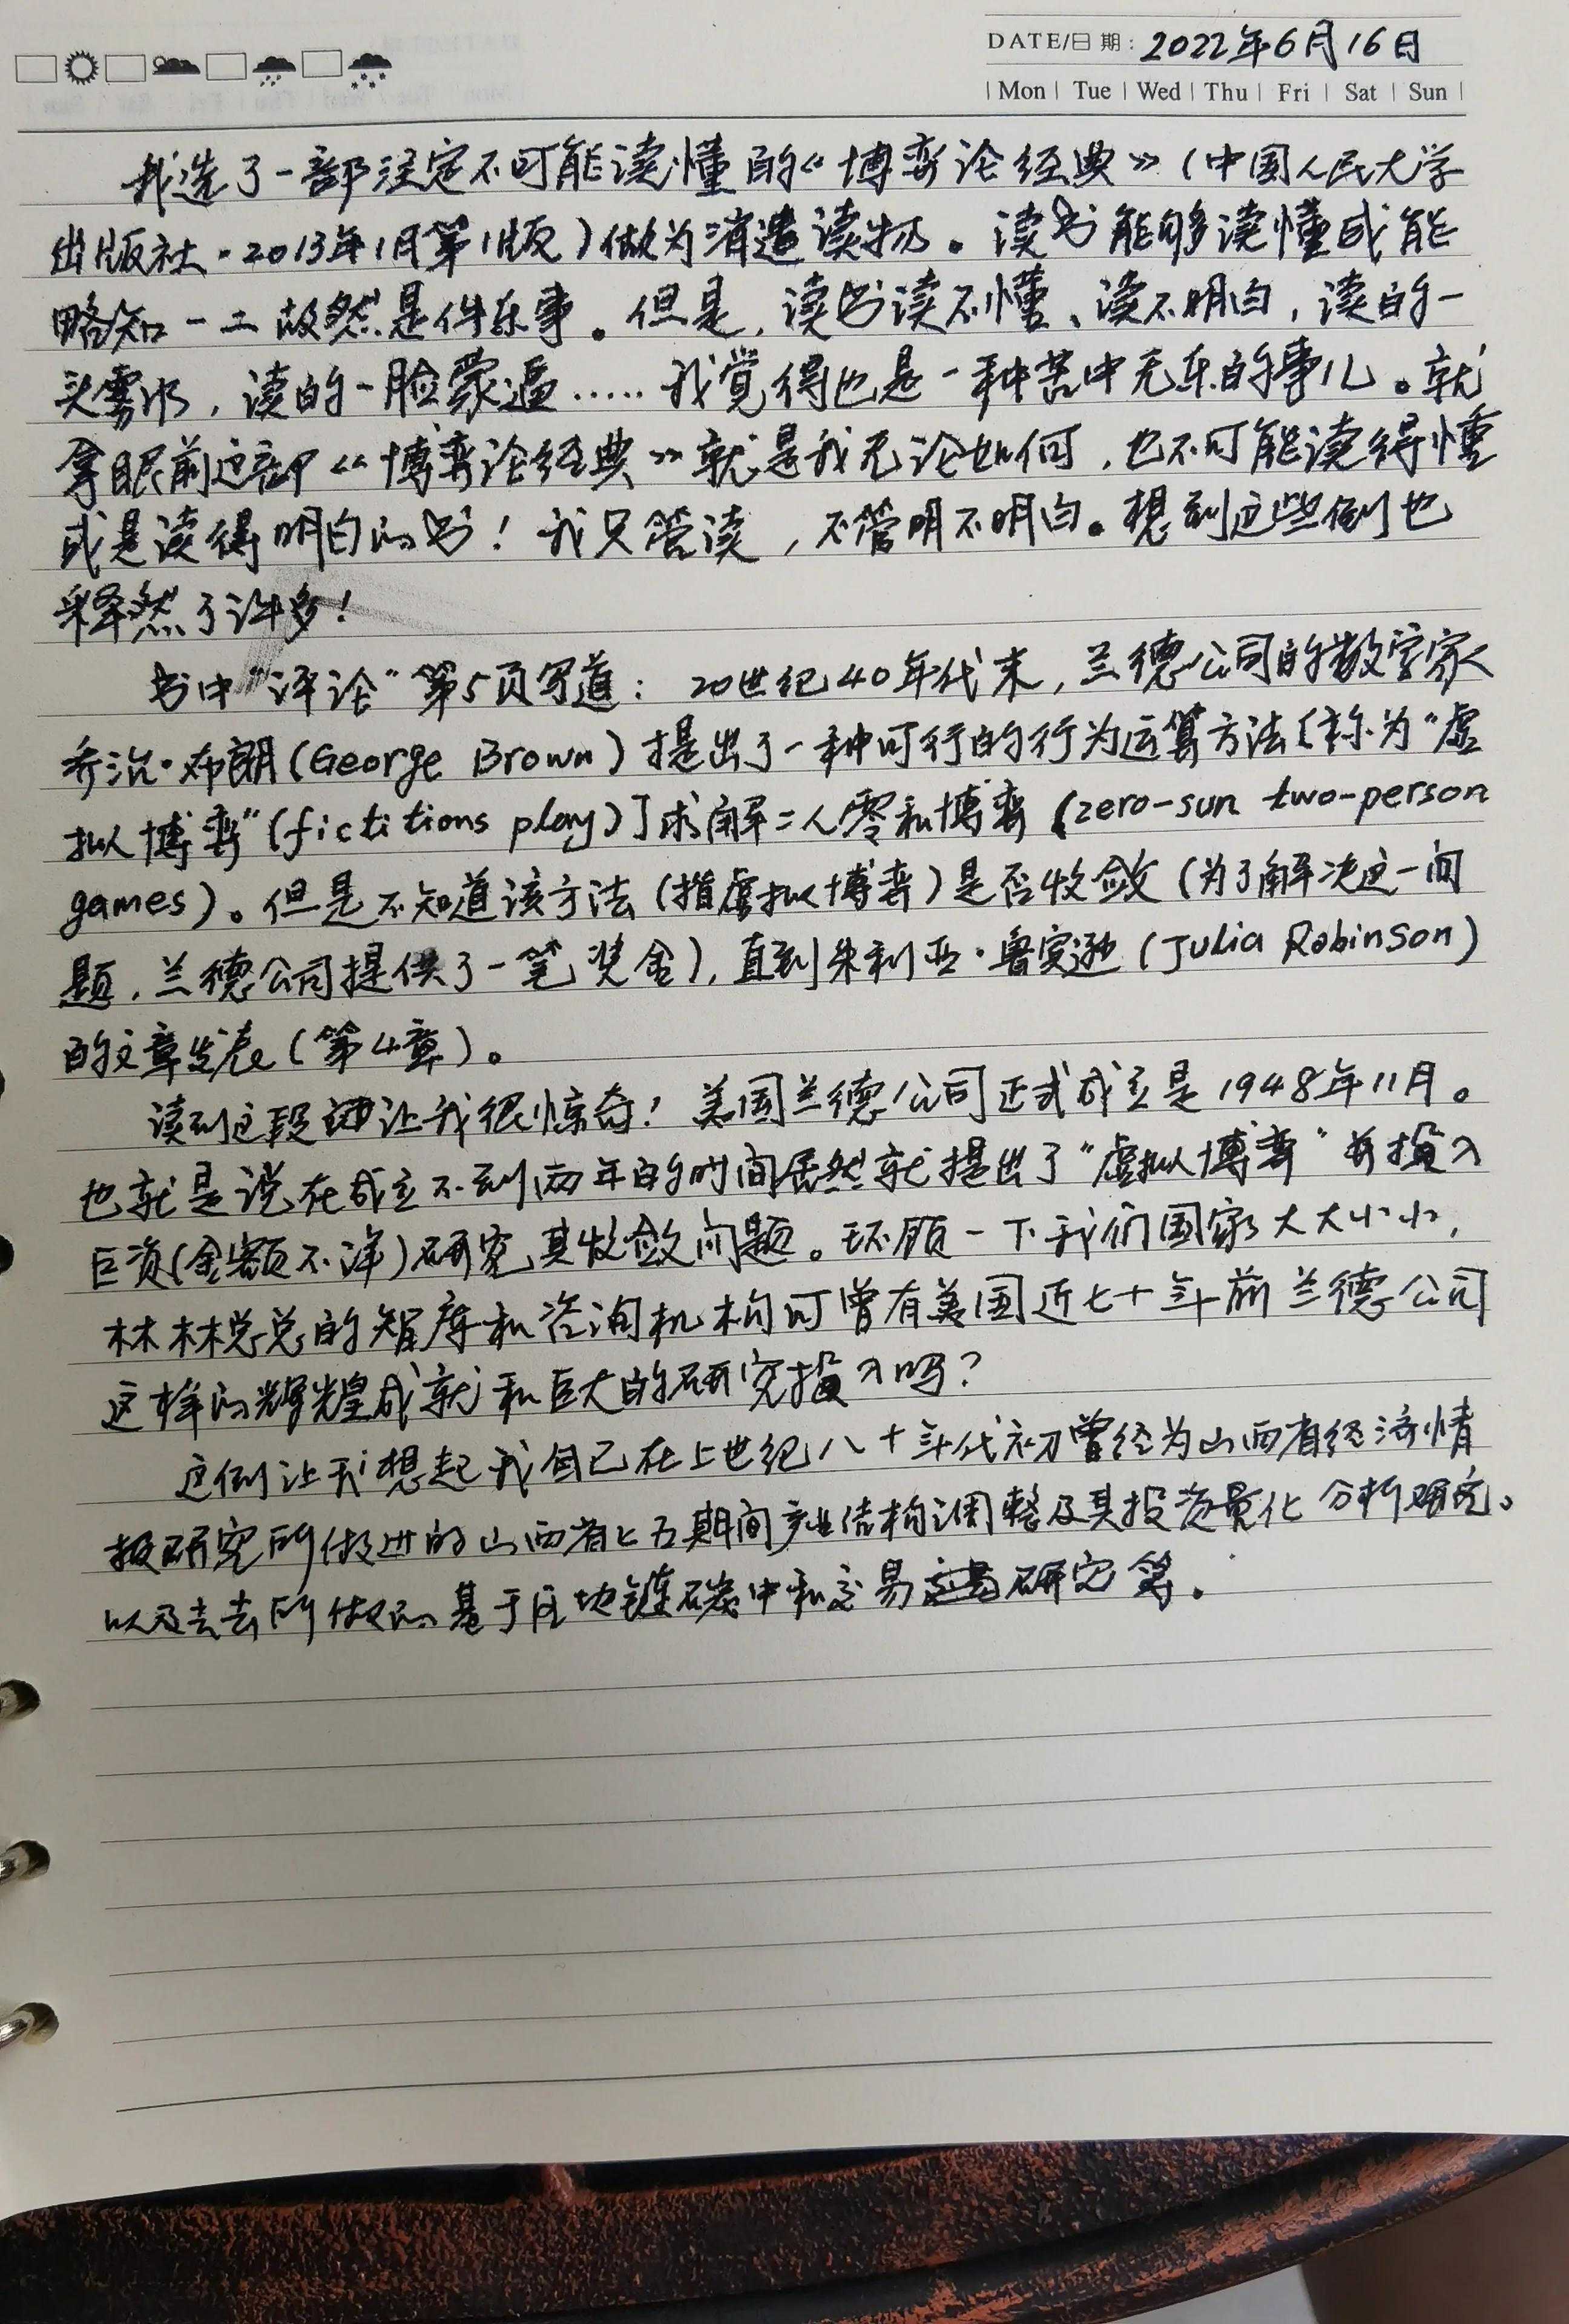 DATE/日期: 2022年6月16日
| Mon | Tue | Wed | Thu | Fri | Sat | Sun |
我选了一部注定不可能读懂的《博弈论经典》(中国人民大学
出版社·2013年1月第1版)做为消遣读物。读书能够读懂或能
略知一二故然是件乐事。但是,读书读不懂、读不明白,读的一
头雾水,读的一脸蒙逼……我觉得也是一种苦中无乐的事儿。就
拿眼前这部《博弈论经典》就是我无论如何,也不可能读得懂
或是读得明白的书!我只管读,不管明不明白。想到这些倒也
释然了许多!
书中"评论"第5页写道:20世纪40年代末,兰德公司的数学家
乔治·布朗(George Brown)提出了一种可行的行为运算方法[称为"虚
拟博弈"(fictitions play)]求解二人零和博弈(zero-sun two-person
games)。但是不知道该方法(指虚拟博弈)是否收敛(为了解决这一问
题,兰德公司提供了一笔奖金),直到朱利亚·鲁宾逊(Julia Robinson)
的文章发表(第4章)。
读到这段让我很惊奇!美国兰德公司正式成立是1948年11月。
也就是说在成立不到两年的时间居然就提出了"虚拟博弈"并投入
巨资(金额不详)研究其收敛问题。环顾一下我们国家大大小小,
林林总总的智库和咨询机构可曾有美国近七十年前兰德公司
这样的辉煌成就和巨大的研究投入吗?
这倒让我想起我自己在上世纪八十年代初曾经为山西省经济情
报研究所做过的山西省七五期间产业结构调整及其投资量化分析研究。
以及去年所做的基于区块链碳中和交易研究等。